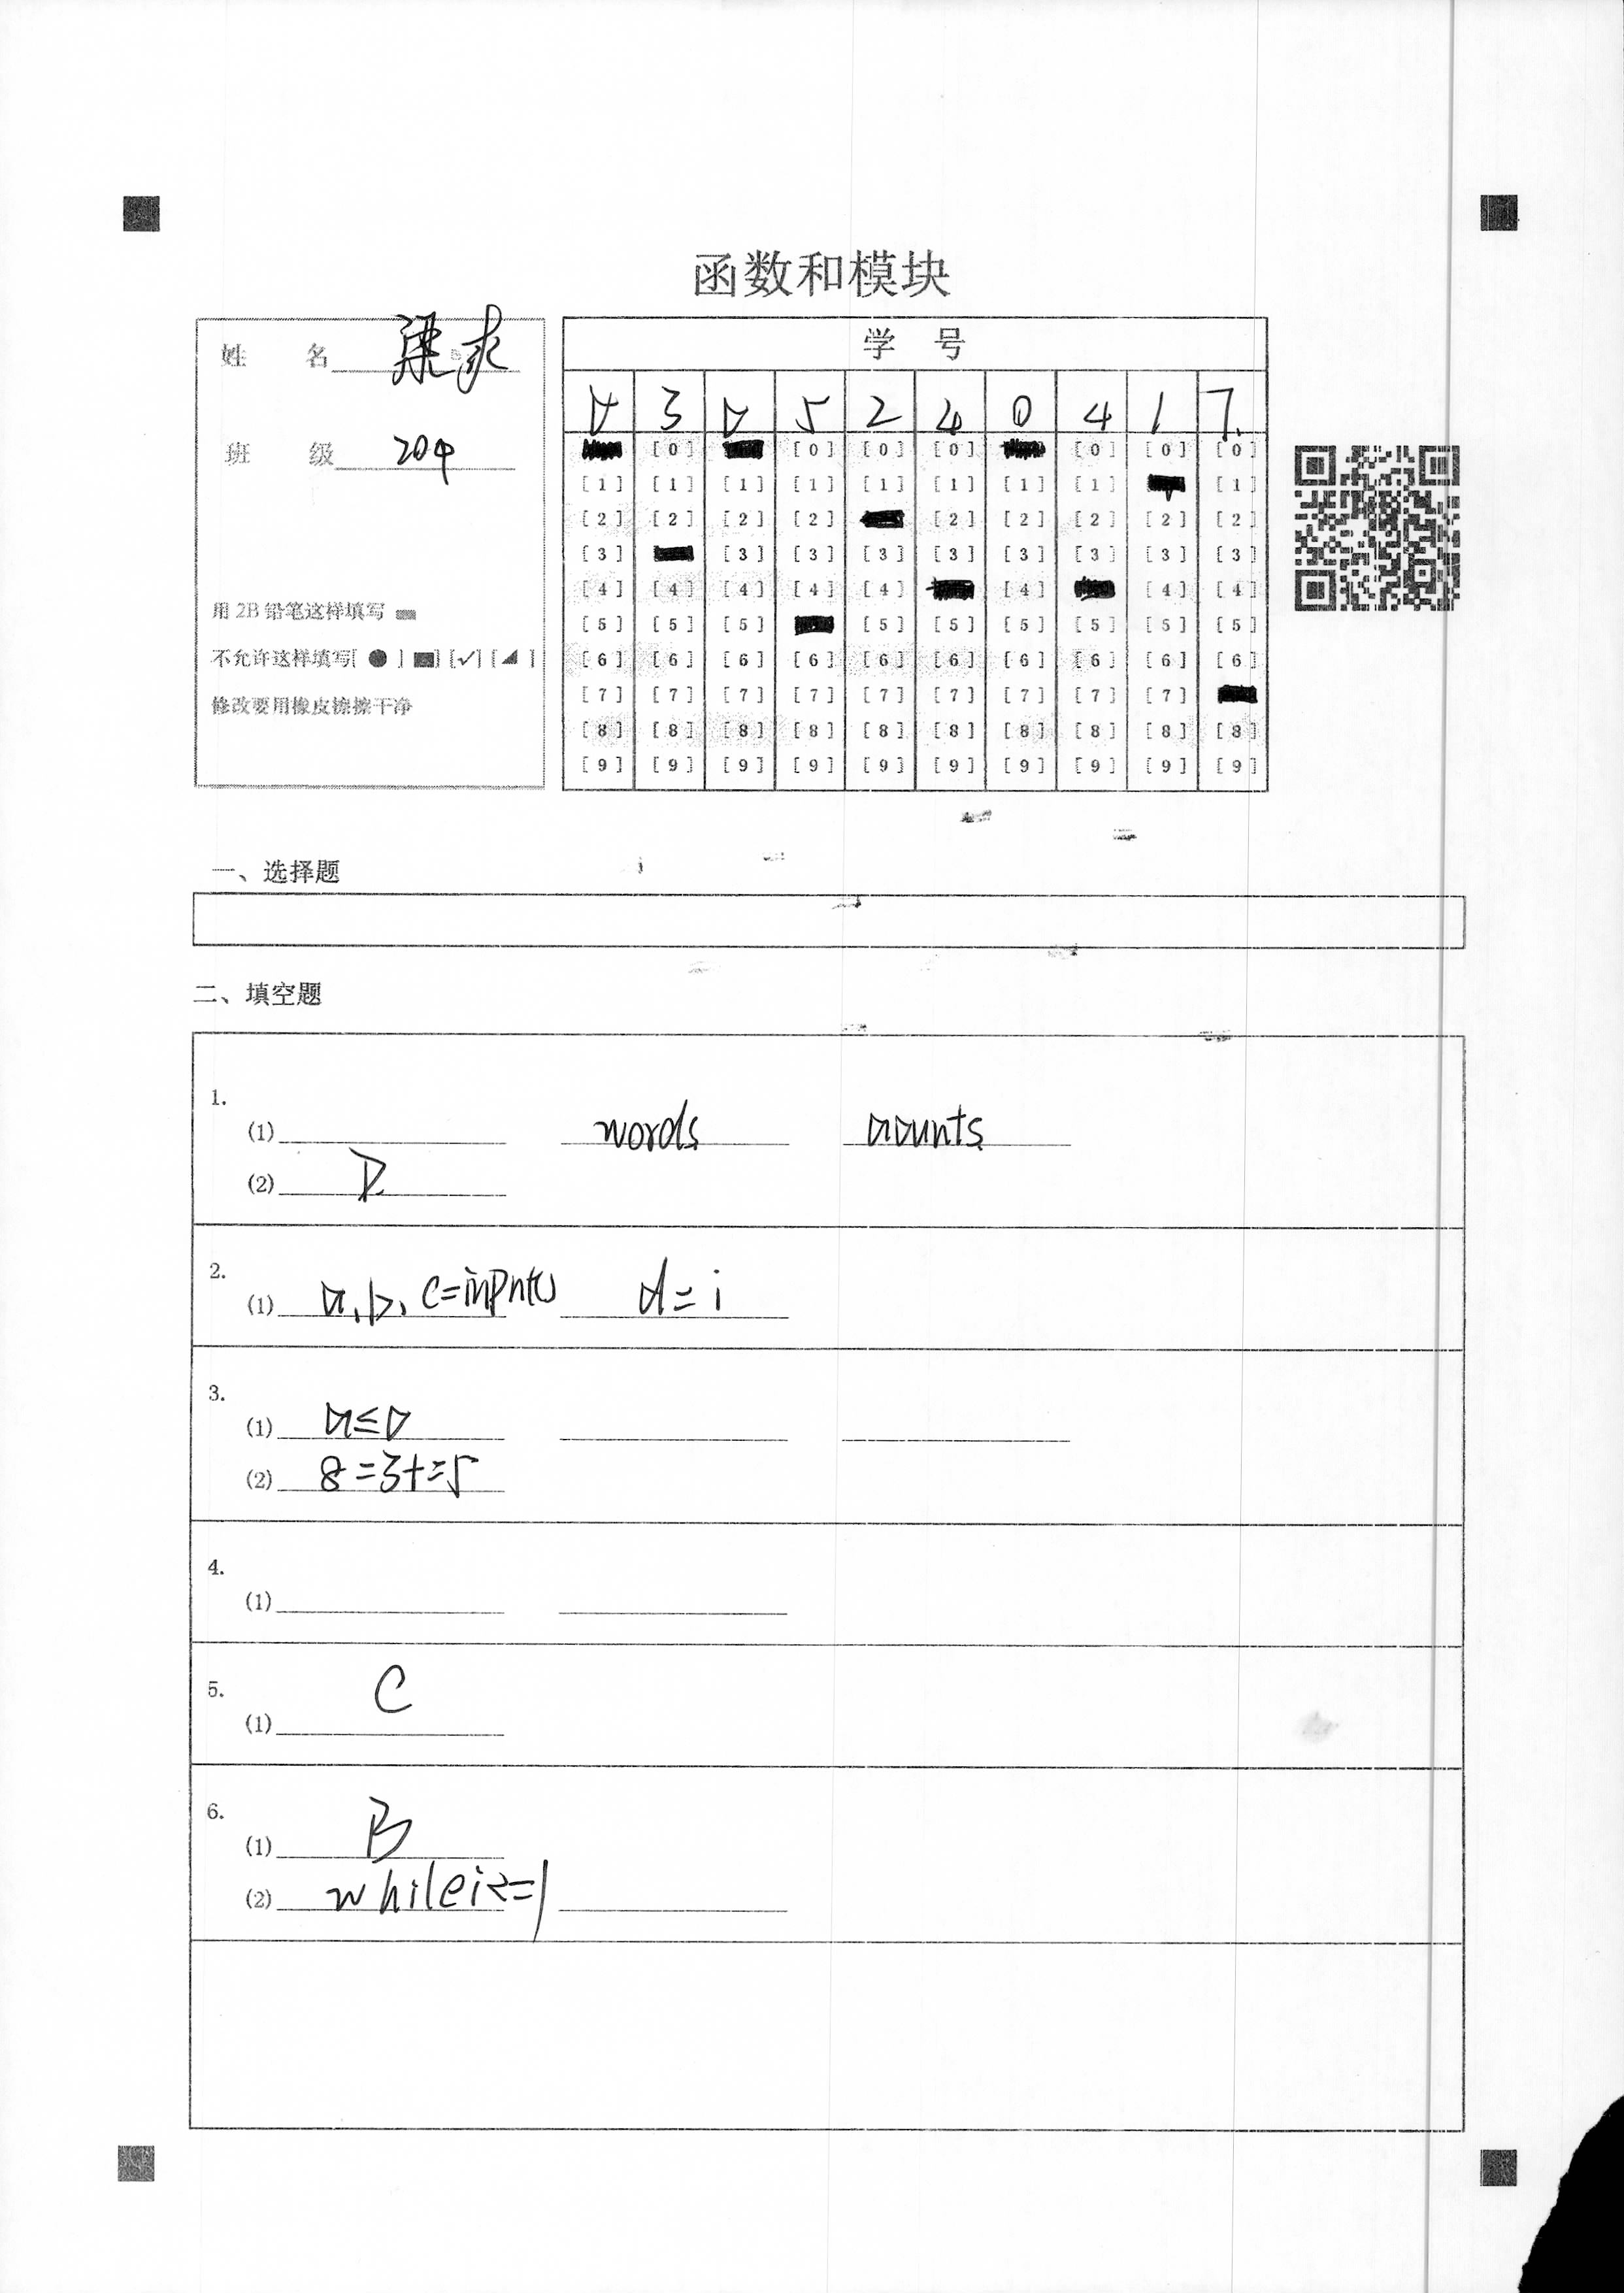 函数和模块
姓 名 梁
班 级 204
用 2B 铅笔这样填写
不允许这样填写[ ● ] [■] [✓] [◢ ]
修改要用橡皮擦擦干净
学 号
0 3 0 5 2 4 0 4 1 7
[0] [0] [0] [0] [0] [0] [0]
[1] [1] [1] [1] [1] [1] [1] [1] [1]
[2] [2] [2] [2] [2] [2] [2] [2] [2]
[3] [3] [3] [3] [3] [3] [3] [3] [3]
[4] [4] [4] [4] [4] [4] [4] [4]
[5] [5] [5] [5] [5] [5] [5] [5] [5]
[6] [6] [6] [6] [6] [6] [6] [6] [6] [6]
[7] [7] [7] [7] [7] [7] [7] [7] [7]
[8] [8] [8] [8] [8] [8] [8] [8] [8] [8]
[9] [9] [9] [9] [9] [9] [9] [9] [9] [9]
一、选择题
二、填空题
1.
(1) words counts
(2) D
2.
(1) a,b,c=input() d=i
3.
(1) a≤0
(2) 8=3+=5
4.
(1)
5.
(1) C
6.
(1) B
(2) while i<=1